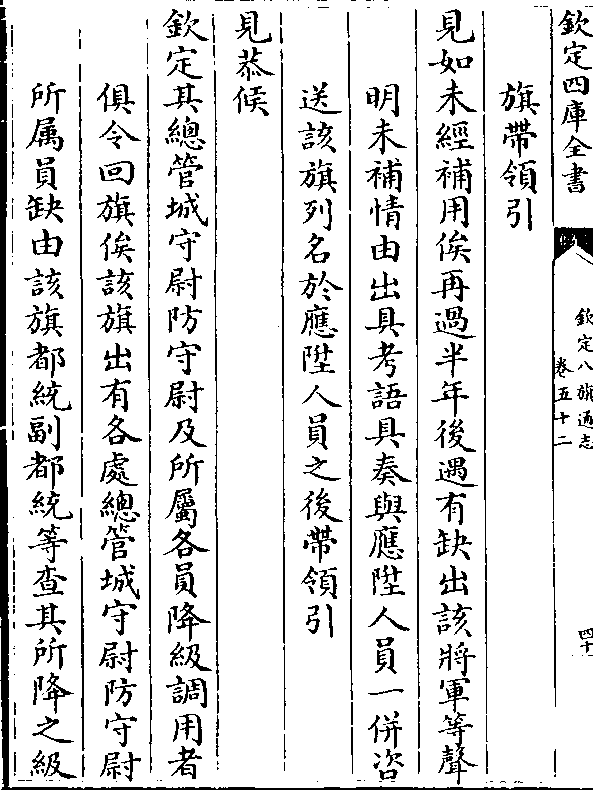 欽定四庫全書
欽定八旗通志
卷五十二
四十
旗帶領引
見如未經補用俟再過半年後遇有缺出該將軍等聲
明未補情由出具考語具奏與應陞人員一併咨
送該旗列名於應陞人員之後帶領引
見恭候
欽定其總管城守尉防守尉及所屬各員降級調用者
俱令回旗俟該旗出有各處總管城守尉防守尉
所属員缺由該旗都統副都統等查其所降之級